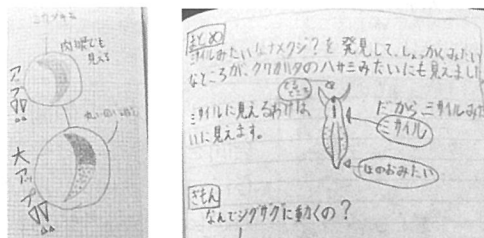 肉眼でも
見える
アップ
大アップ
まとめ
ミサイルみたいなナメクジ?を発見して、しょっかくみたい
なところが、クワガタのハサミみたいにも見えました
ミサイルに見えるわけは
だからミサイルみた
いに見えます。
ミサイル
ほのおみたい
ぎもん
なんでジグザグに動くの?